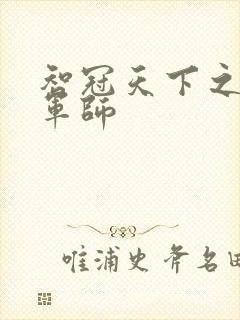 智冠天下之
軍師
唯浦史斧名田